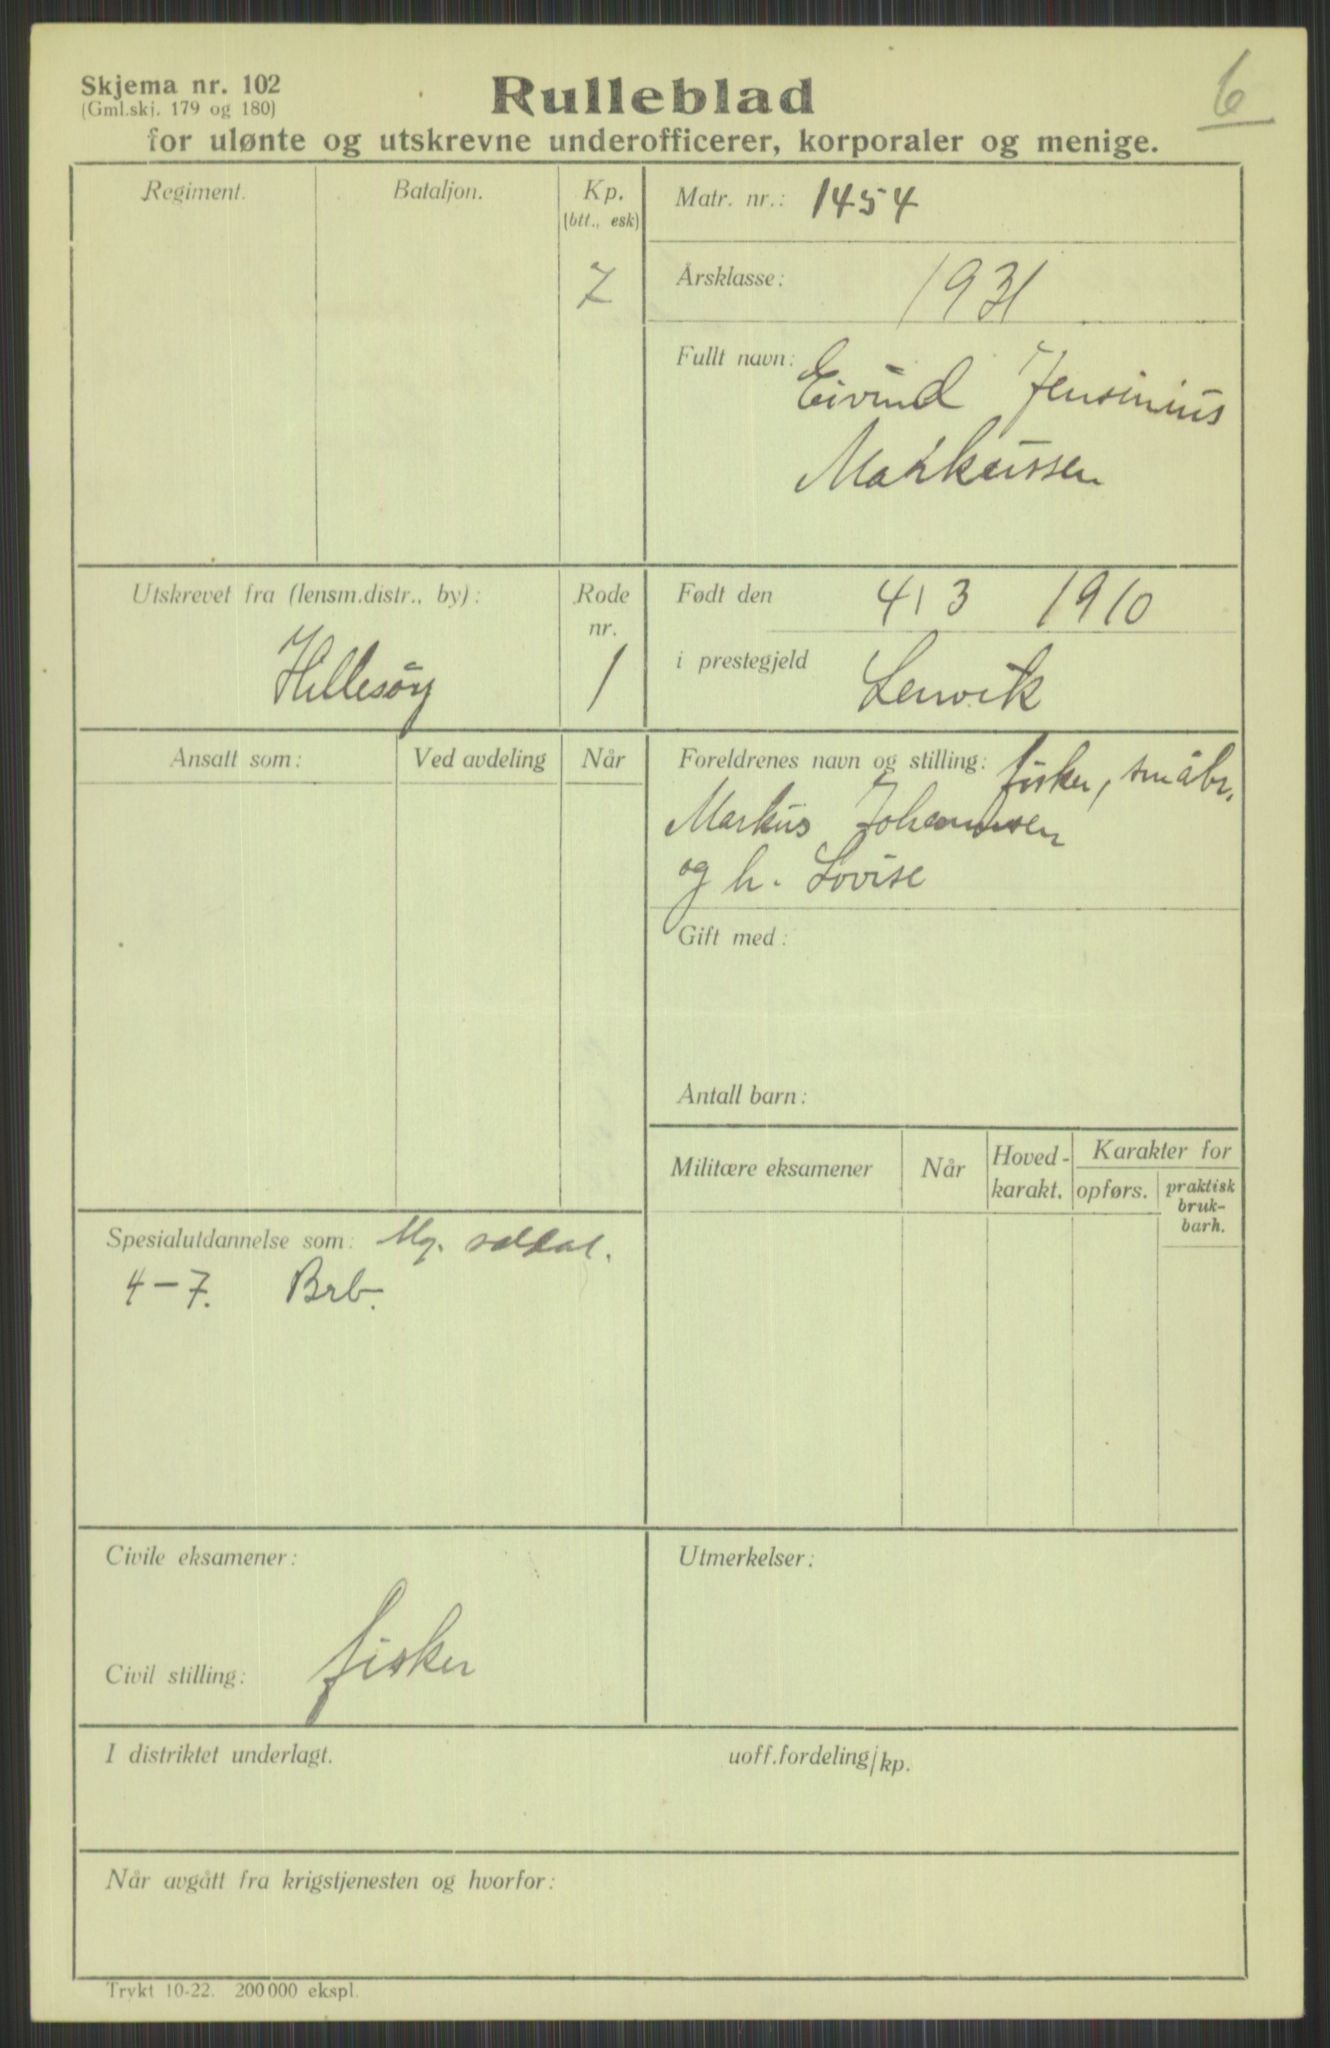 Skjema nr. 102
(Gml.skj. 179 og 180)
Rulleblad
6
for ulønte og utskrevne underofficerer, korporaler og menige.
Regiment.
Bataljon.
Kp.
(btt., esk)
7
Matr. nr.: 1454
Årsklasse: 1931
Fullt navn: Eivind Jensinius
Markussen
Utskrevet fra (lensm.distr., by):
Hillesöy
Rode
nr.
1
Født den 4/3 1910
i prestegjeld Lenvik
Ansatt som:
Ved avdeling
Når
Foreldrenes navn og stilling: fisker, småbr.
Markus Johannesen
og h. Lovise
Gift med:
Antall barn:
Militære eksamener
Når
Hoved-
karakt.
Karakter for
opførs.
praktisk
bruk-
barh.
Spesialutdannelse som: Mg. soldat.
4-7. Brb.
Civile eksamener:
Civil stilling: fisker
Utmerkelser:
I distriktet underlagt.
uoff.fordeling/kp.
Når avgått fra krigstjenesten og hvorfor:
Trykt 10-22. 200 000 ekspl.